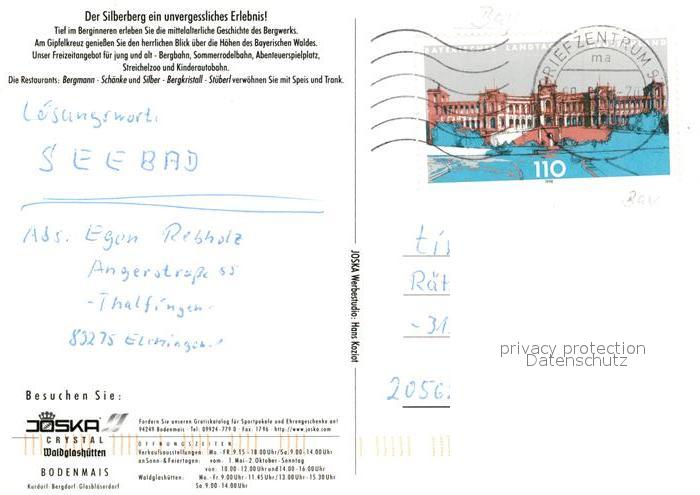 Der Silberberg ein unvergessliches Erlebnis!
Tief im Berginneren erleben Sie die mittelalterliche Geschichte des Bergwerks.
Am Gipfelkreuz genießen Sie den herrlichen Blick über die Höhen des Bayerischen Waldes.
Unser Freizeitangebot für jung und alt - Bergbahn, Sommerrodelbahn, Abenteuerspielplatz,
Streichelzoo und Kinderautobahn.
Die Restaurants: Bergmann - Schänke und Silber - Bergkristall - Stüberl verwöhnen Sie mit Speis und Trank.
Lösungswort:
SEEBAD
Abs. Egon Rebholz
Angerstraße 55
- Thalfingen -
89275 Elchingen
Besuchen Sie:
JOSKA
CRYSTAL
Waldglashütten
BODENMAIS
Kurdorf · Bergdorf · Glasbläserdorf
Fordern Sie unseren Gratiskatalog für Sportpokale und Ehrengeschenke an!
94249 Bodenmais · Tel: 09924-779 0 · Fax: 1796 · http://www.joska.com
ÖFFNUNGSZEITEN
Verkaufsausstellungen: Mo.-FR. 9.15 - 18.00 Uhr/Sa. 9.00-14.00 Uhr
an Sonn- & Feiertagen: vom 1. Mai - 2. Oktober - Sonntag
von: 10.00-12.00 Uhr und 14.00-16.00 Uhr
Waldglashütten: Mo.-Fr. 9.00 Uhr-11.45 Uhr / 13.00 Uhr - 15.30 Uhr
Sa. 9.00-14.00 Uhr
JOSKA Werbestudio: Hans Kaziot
Bay
BAYERISCHER LANDTAG
BRIEFZENTRUM 9
ma
110
1998
Bay
Rät
- 31
2056
privacy protection
Datenschutz